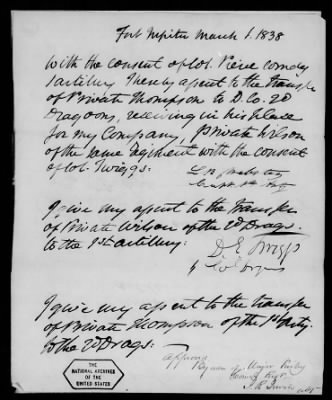 Fort Jupiter March 1. 1838
With the consent of Col. Pierce comdg
1 artillery I hereby assent to the transfer
of Private Thompson to D. Co. 2d
Dragoons, receiving in his place
for my Company, Private Wilson
of the same Regiment with the consent
of Col. Twiggs:
I give my assent to the transfer
of Private Wilson of the 2d Drags.
to the 1st artillery:
D. E. Twiggs
I give my assent to the transfer
of Private Thompson of the 1st Arty.
to the 2d Drags:
approved
By order of Major
THE
NATIONAL ARCHIVES
OF THE
UNITED STATES